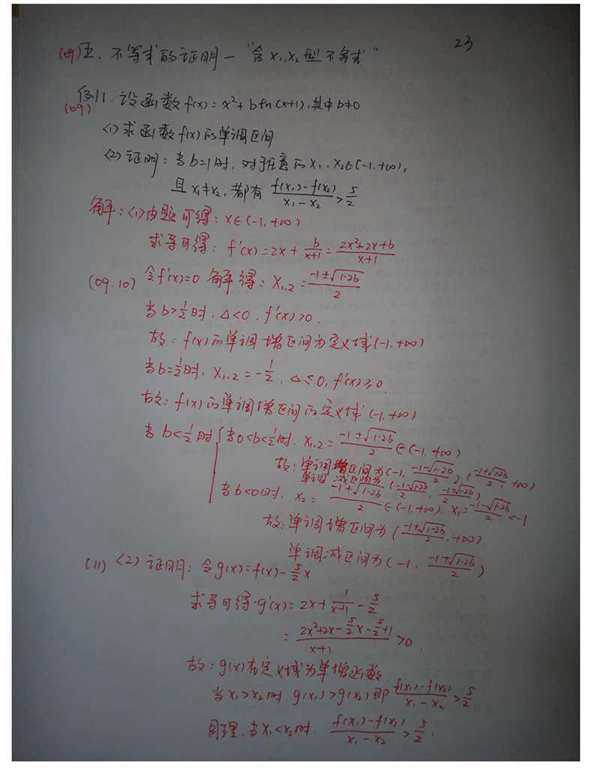 23
(四)五、不等式的证明—“含x₁、x₂型不等式”
例11. 设函数f(x)=x²+bln(x+1),其中b≠0
(09)
<1>求函数f(x)的单调区间
<2>证明:当b=1时,对于任意的x₁、x₂∈(-1,+∞),
且x₁≠x₂,都有 (f(x₁)-f(x₂))/(x₁-x₂)>5/2
解:<1>由题可得:x∈(-1,+∞)
求导可得:f'(x)=2x+b/(x+1)=(2x²+2x+b)/(x+1)
(09.10) 令f'(x)=0 解得:x₁,₂=(-1±√(1-2b))/2
当b>1/2时,Δ<0,f'(x)>0.
故:f(x)的单调增区间为定义域(-1,+∞)
当b=1/2时,x₁,₂=-1/2,Δ≤0,f'(x)≥0.
故:f(x)的单调增区间的定义域(-1,+∞)
当b<1/2时{当0<b<1/2时,x₁,₂=(-1±√(1-2b))/2∈(-1,+∞)
故:单调增区间为(-1,(-1-√(1-2b))/2),((-1+√(1-2b))/2,+∞)
单调减区间为((-1-√(1-2b))/2,(-1+√(1-2b))/2)
当b<0时,x₂=(-1+√(1-2b))/2∈(-1,+∞),x₁=(-1-√(1-2b))/2<-1
故:单调增区间为((-1+√(1-2b))/2,+∞)
单调减区间为(-1,(-1+√(1-2b))/2)
(11) <2>证明:令g(x)=f(x)-5/2x
求导可得:g'(x)=2x+1/(x+1)-5/2
=(2x²+2x-5/2x-5/2+1)/(x+1)>0
故:g(x)在定义域为单增函数
当x₁>x₂时,g(x₁)>g(x₂)即(f(x₁)-f(x₂))/(x₁-x₂)>5/2
同理,当x₁<x₂时.(f(x₁)-f(x₂))/(x₁-x₂)>5/2.